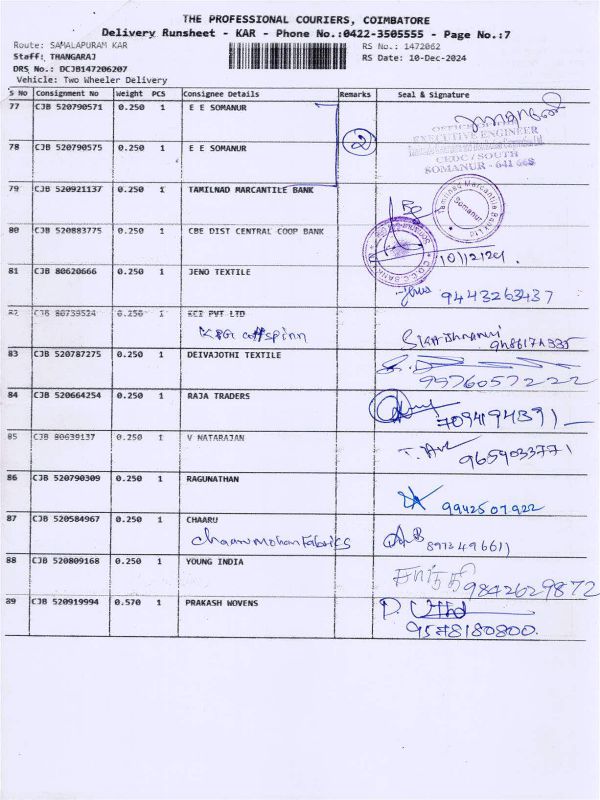 THE PROFESSIONAL COURIERS, COIMBATORE
Delivery Runsheet - KAR - Phone No.:0422-3505555 - Page No.:7
Route: SAMALAPURAM KAR RS No.: 1472062
Staff: THANGARAJ RS Date: 10-Dec-2024
DRS No.: DCJB147206207
Vehicle: Two Wheeler Delivery
S No Consignment No Weight PCS Consignee Details Remarks Seal & Signature
77 CJB 520790571 0.250 1 E E SOMANUR
EXECUTIVE ENGINEER
78 CJB 520790575 0.250 1 E E SOMANUR 2
CEDC / SOUTH
SOMANUR - 641 668
79 CJB 520921137 0.250 1 TAMILNAD MARCANTILE BANK
Tamilnad Mercantile Bank Ltd
Somanur
80 CJB 520883775 0.250 1 CBE DIST CENTRAL COOP BANK
10/12/24.
81 CJB 80620666 0.250 1 JENO TEXTILE
9443263437
82 CJB 80739524 0.250 1 KCI PVT LTD
83 CJB 520787275 0.250 1 DEIVAJOTHI TEXTILE
9976057222
84 CJB 520664254 0.250 1 RAJA TRADERS
7094194391
85 CJB 80639137 0.250 1 V NATARAJAN
9659033771
86 CJB 520790309 0.250 1 RAGUNATHAN
9942507922
87 CJB 520584967 0.250 1 CHAARU
Chaarumohan Fabrics 8973496611
88 CJB 520809168 0.250 1 YOUNG INDIA
9842629872
89 CJB 520919994 0.570 1 PRAKASH WOVENS
9578180800.